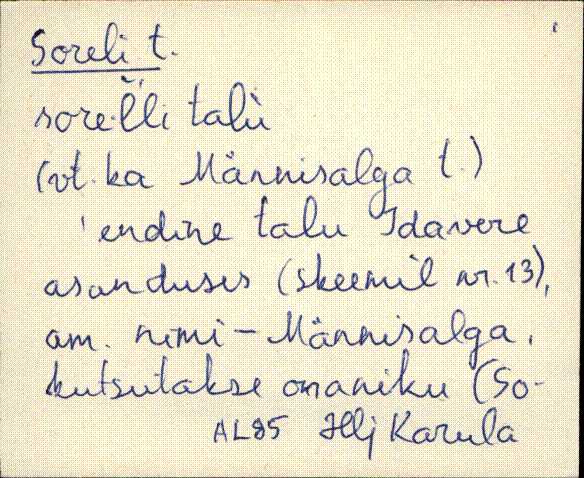 Soreli t.
sorel̆l̆i talù
(vt. ka Männisalga t.)
endine talu Idavere
asanduses (skeemil nr. 13),
am. nimi - Männisalga,
kutsutakse omaniku (So-
AL85 Hlj Karula